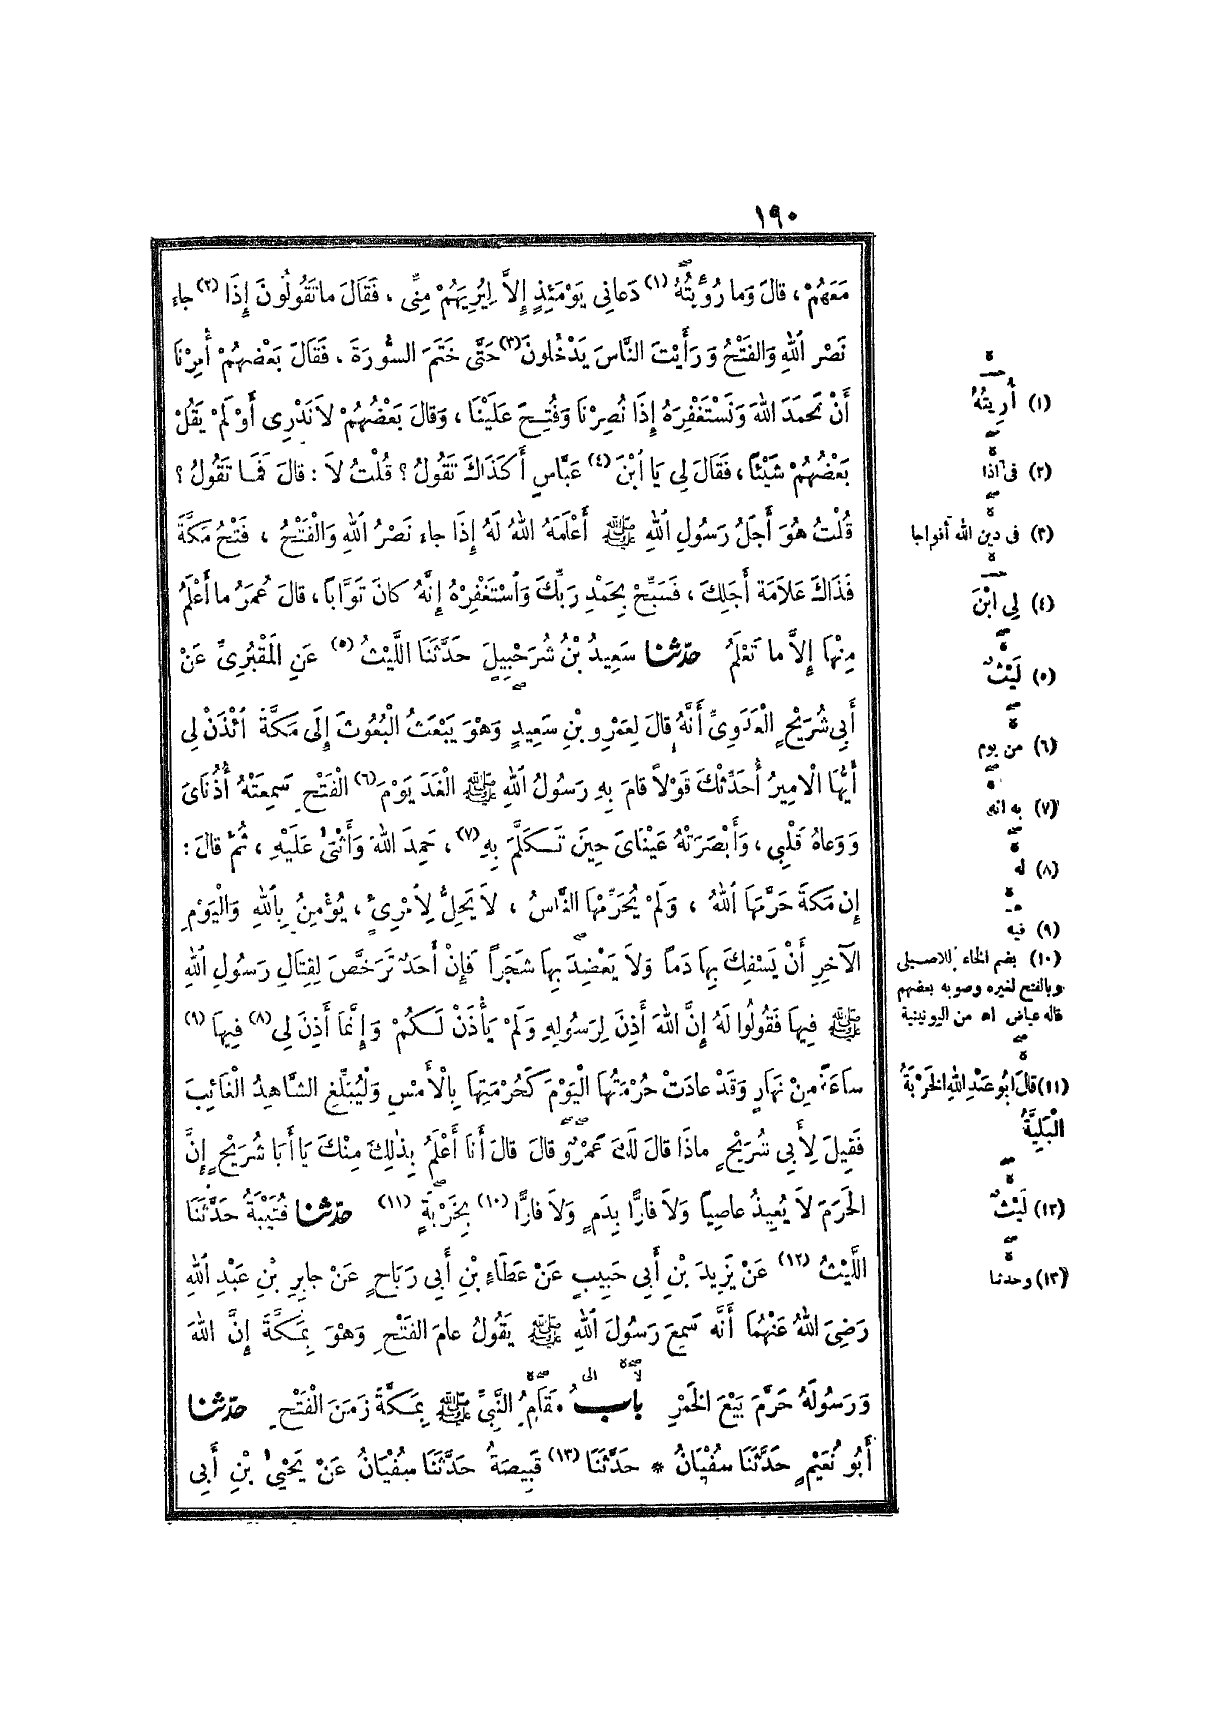 ١٩٠
مَعَهُمْ ، قالَ وَما رُؤِيتُهُ (١) دَعانِي يَوْمَئِذٍ إِلاَّ لِيُرِيَهُمْ مِنِّى ، فَقَالَ ما تَقُولُونَ إِذَا (٢) جاءَ
نَصْرُ اللهِ وَالفَتْحُ وَرَأَيْتَ النَّاسَ يَدْخُلونَ (٣) حَتَّى خَتَمَ السُّورَةَ ، فَقَالَ بَعْضُهُمْ أُمِرْنَا
أَنْ نَحْمَدَ اللهَ وَنَسْتَغْفِرَهُ إِذَا نُصِرْنَا وَفُتِحَ عَلَيْنَا ، وَقالَ بَعْضُهُمْ لاَ نَدْرِى أَوْ لَمْ يَقُلْ
بَعْضُهُمْ شَيْئاً ، فَقَالَ لِي يَا ابْنَ (٤) عَبَّاسٍ أَكَذَاكَ تَقُولُ ؟ قُلْتُ لاَ : قالَ فَمَا تَقُولُ ؟
قُلْتُ هُوَ أَجَلُ رَسُولِ اللهِ ﷺ أَعْلَمَهُ اللهُ لَهُ إِذَا جاءَ نَصْرُ اللهِ وَالْفَتْحُ ، فَتْحُ مَكَّةَ
فَذَاكَ عَلاَمَةُ أَجَلِكَ ، فَسَبِّحْ بِحَمْدِ رَبِّكَ وَاسْتَغْفِرْهُ إِنَّهُ كانَ تَوَّاباً ، قالَ عُمَرُ ما أَعْلَمُ
مِنْهَا إِلاَّ ما تَعْلَمُ حدّثنا سَعِيدُ بْنُ شُرَحْبِيلَ حَدَّثَنَا اللَّيْثُ (٥) عَنِ المَقْبُرِىِّ عَنْ
أَبِي شُرَيْحٍ الْعَدَوِىِّ أَنَّهُ قالَ لِعَمْرِو بْنِ سَعِيدٍ وَهْوَ يَبْعَثُ الْبُعُوثَ إِلَى مَكَّةَ ائْذَنْ لِي
أَيُّهَا الْأَمِيرُ أُحَدِّثْكَ قَوْلاً قامَ بِهِ رَسُولُ اللهِ ﷺ الْغَدَ يَوْمَ (٦) الْفَتْحِ سَمِعَتْهُ أُذُنَاىَ
وَوَعاهُ قَلْبِي ، وَأَبْصَرَتْهُ عَيْنَاىَ حِينَ تَكَلَّمَ بِهِ (٧) ، حَمِدَ اللهَ وَأَثْنَى عَلَيْهِ ، ثُمَّ قالَ :
إِن مَكَّةَ حَرَّمَهَا اللهُ ، وَلَمْ يُحَرِّمْهَا النَّاسُ ، لاَ يَحِلُّ لِامْرِئٍ ، يُؤْمِنُ بِاللهِ وَالْيَوْمِ
الآخِرِ أَنْ يَسْفِكَ بِهَا دَماً وَلاَ يَعْضِدَ بِهَا شَجَراً فَإِنْ أَحَدٌ تَرَخَّصَ لِقِتَالِ رَسُولِ اللهِ
ﷺ فِيهَا فَقُولُوا لَهُ إِنَّ اللهَ أَذِنَ لِرَسُولِهِ وَلَمْ يَأْذَنْ لَكُمْ وَإِنَّمَا أَذِنَ لِي (٨) فِيهَا (٩)
ساعَةً مِنْ نَهَارٍ وَقَدْ عادَتْ حُرْمَتُهَا الْيَوْمَ كَحُرْمَتِهَا بِالْأَمْسِ وَلْيُبَلِّغِ الشَّاهِدُ الْغَائِبَ
فَقِيلَ لِأَبِي شُرَيْحٍ ماذَا قالَ لَكَ عَمْرٌو قالَ قالَ أَنَا أَعْلَمُ بِذٰلِكَ مِنْكَ يَا أَبَا شُرَيْحٍ إِنَّ
الحَرَمَ لاَ يُعِيذُ عاصِياً وَلاَ فارًّا بِدَمٍ وَلاَ فارًّا (١٠) بِخَرْبَةٍ (١١) حدّثنا قُتَيْبَةُ حَدَّثَنَا
اللَّيْثُ (١٢) عَنْ يَزِيدَ بْنِ أَبِي حَبِيبٍ عَنْ عَطَاءِ بْنِ أَبِي رَبَاحٍ عَنْ جابِرِ بْنِ عَبْدِ اللهِ
رَضِيَ اللهُ عَنْهُمَا أَنَّه سَمِعَ رَسُولَ اللهِ ﷺ يَقُولُ عامَ الفَتْحِ وَهْوَ بِمَكَّةَ إِنَّ اللهَ
وَرَسُولَهُ حَرَّمَ بَيْعَ الخَمْرِ باب مَقَامِ النَّبِيِّ ﷺ بِمَكَّةَ زَمَنَ الْفَتْحِ حدّثنا
أَبُو نُعَيْمٍ حَدَّثَنَا سُفْيَانُ * حَدَّثَنَا (١٣) قَبِيصَةُ حَدَّثَنَا سُفْيَانُ عَنْ يَحْيَى بْنِ أَبِي
(١) أُرِيتُهُ
(٢) فى إذا
(٣) فى دين الله أفواجا
(٤) لِي ابْنَ
(٥) لَيْثٌ
(٦) من يوم
(٧) به انه
(٨) له
(٩) فيه
(١٠) بضم الخاء للاصيلى
وبالفتح لغيره وصوبه بعضهم
قاله عياض اه من اليونينية
(١١) قالَ ابُو عَبْدِ اللهِ الخَرْبَةُ
الْبَلِيَّةُ
(١٢) لَيْثٌ
(١٣) وحدثنا